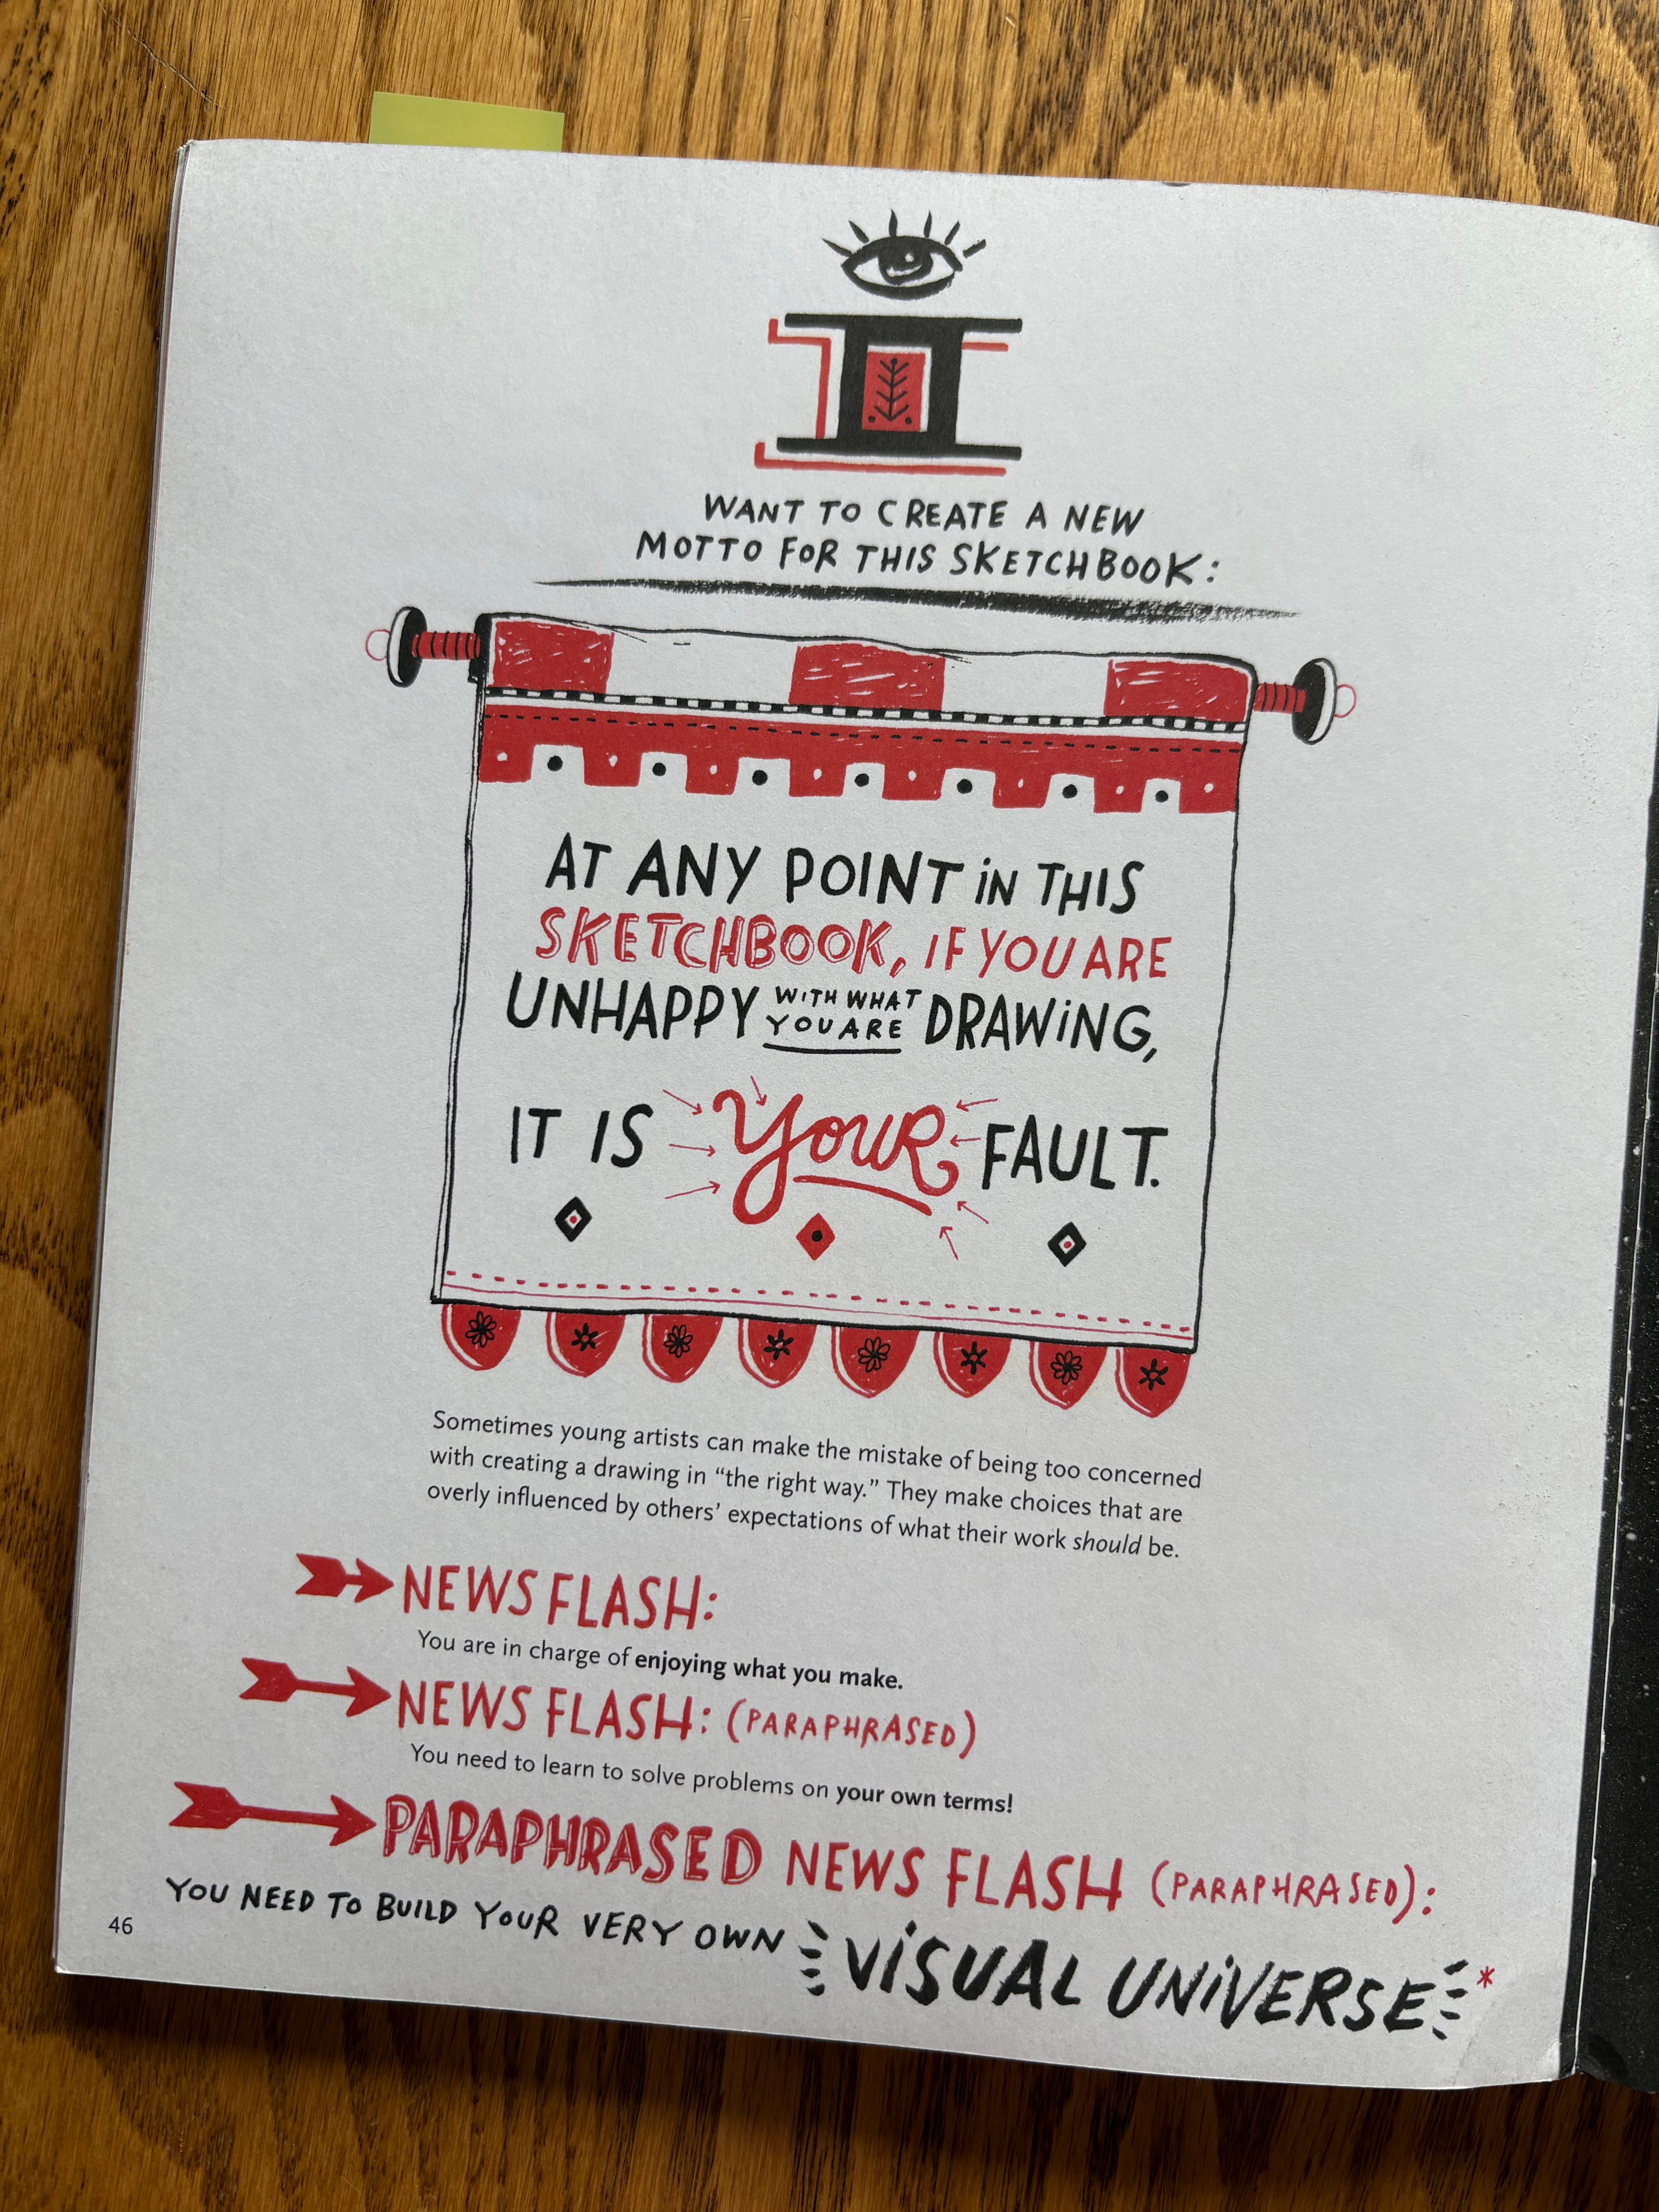 I
WANT TO CREATE A NEW
MOTTO FOR THIS SKETCHBOOK:
AT ANY POINT iN THIS
SKETCHBOOK, IF YOU ARE
UNHAPPY WITH WHAT YOU ARE DRAWiNG,
IT IS YOUR FAULT.
Sometimes young artists can make the mistake of being too concerned
with creating a drawing in “the right way.” They make choices that are
overly influenced by others’ expectations of what their work should be.
NEWS FLASH:
You are in charge of enjoying what you make.
NEWS FLASH: (PARAPHRASED)
You need to learn to solve problems on your own terms!
PARAPHRASED NEWS FLASH (PARAPHRASED):
YOU NEED TO BUILD YOUR VERY OWN ViSUAL UNiVERSE*
46